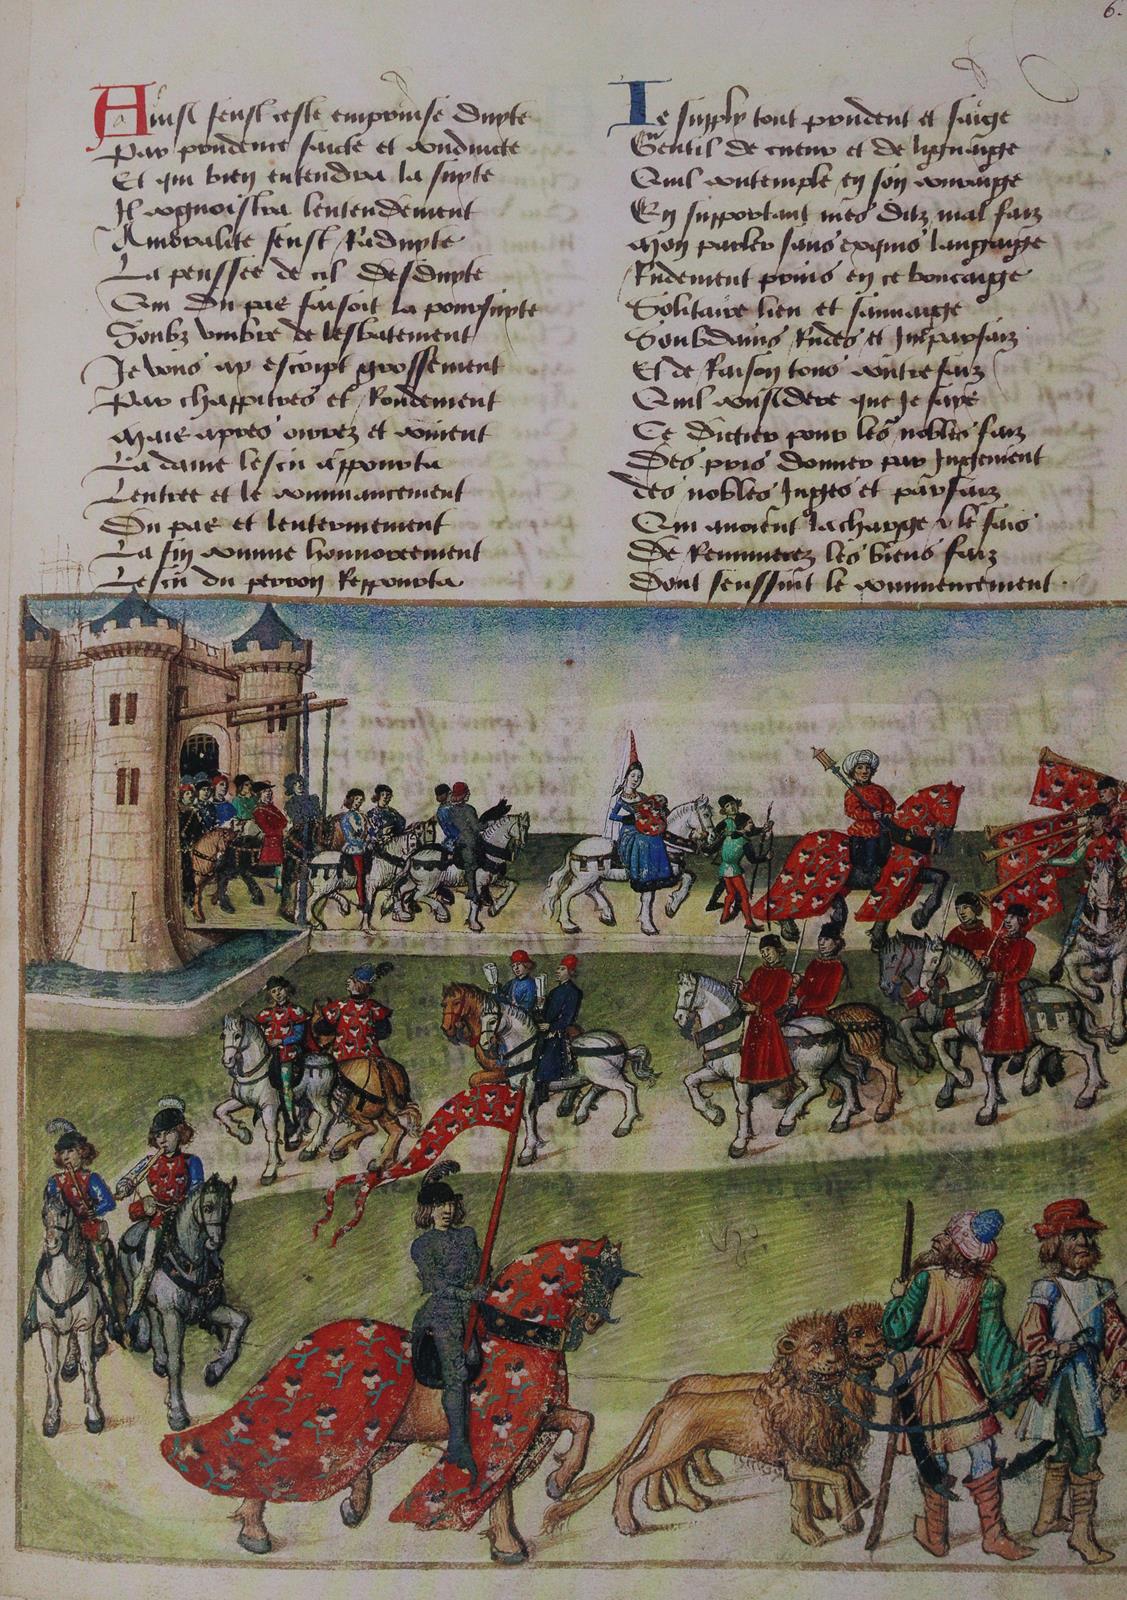 6.
Ainsi fensl ceste emprinse duyte
Par prudence faicte et conduicte
Et qui bien entendra la suyte
Il cognoistra lentendement
La penssee de cil desduyte
Qui du pas faisoit la poursuyte
Soubz umbre de lesbatement
Je vous ay escript grossement
Par chappitres et Rondement
Mais apres ouvrez et
La dame lescu appourta
Lentree et le commancement
Du pas et lentermement
La fin comme honnoreement
Lescu du perron Reppourta
Je supply tout prudent et saige
Gentil de cueur et de lignaige
Quil contemple en son couraige
En supportant mes ditz mal faiz
Mon parler sans exquis langaige
Rudement prins en ce boucaige
Solitaire lieu et sauvaige
Soubdains Rudes et Imparfaiz
Et de Raison tous contrefaiz
Quil considere que Je faiz
Ce dictier pour les nobles faiz
Des pris donner par Jugement
des nobles Juges et parfaiz
Qui avoient la charge & le fais
De Remunerez les biens faiz
Dont senssuit le commencement.